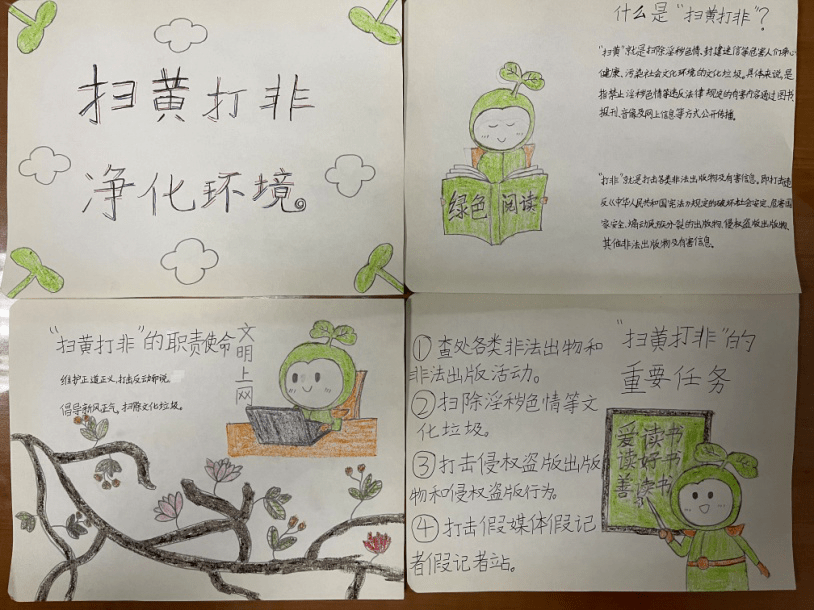 扫黄打非
净化环境。
什么是“扫黄打非”?
“扫黄”就是扫除淫秽色情、封建迷信等危害人们身心
健康、污染社会文化环境的文化垃圾。具体来说,是
指禁止淫秽色情等违反法律规定的有害内容通过图书
报刊、音像及网上信息等方式公开传播。
绿色 阅读
“打非”就是打击各类非法出版物及有害信息。即打击违
反《中华人民共和国宪法》规定的破坏社会安定、危害国
家安全、煽动民族分裂的出版物,侵权盗版出版物,
其他非法出版物及有害信息。
“扫黄打非”的职责使命
维护正道正义,打击反动邪说
倡导新风正气,扫除文化垃圾。
文明上网
“扫黄打非”的
重要任务
①查处各类非法出物和
非法出版活动。
②扫除淫秽色情等文
化垃圾。
③打击侵权盗版出版
物和侵权盗版行为。
④打击假媒体假记
者假记者站。
爱读书
读好书
善读书